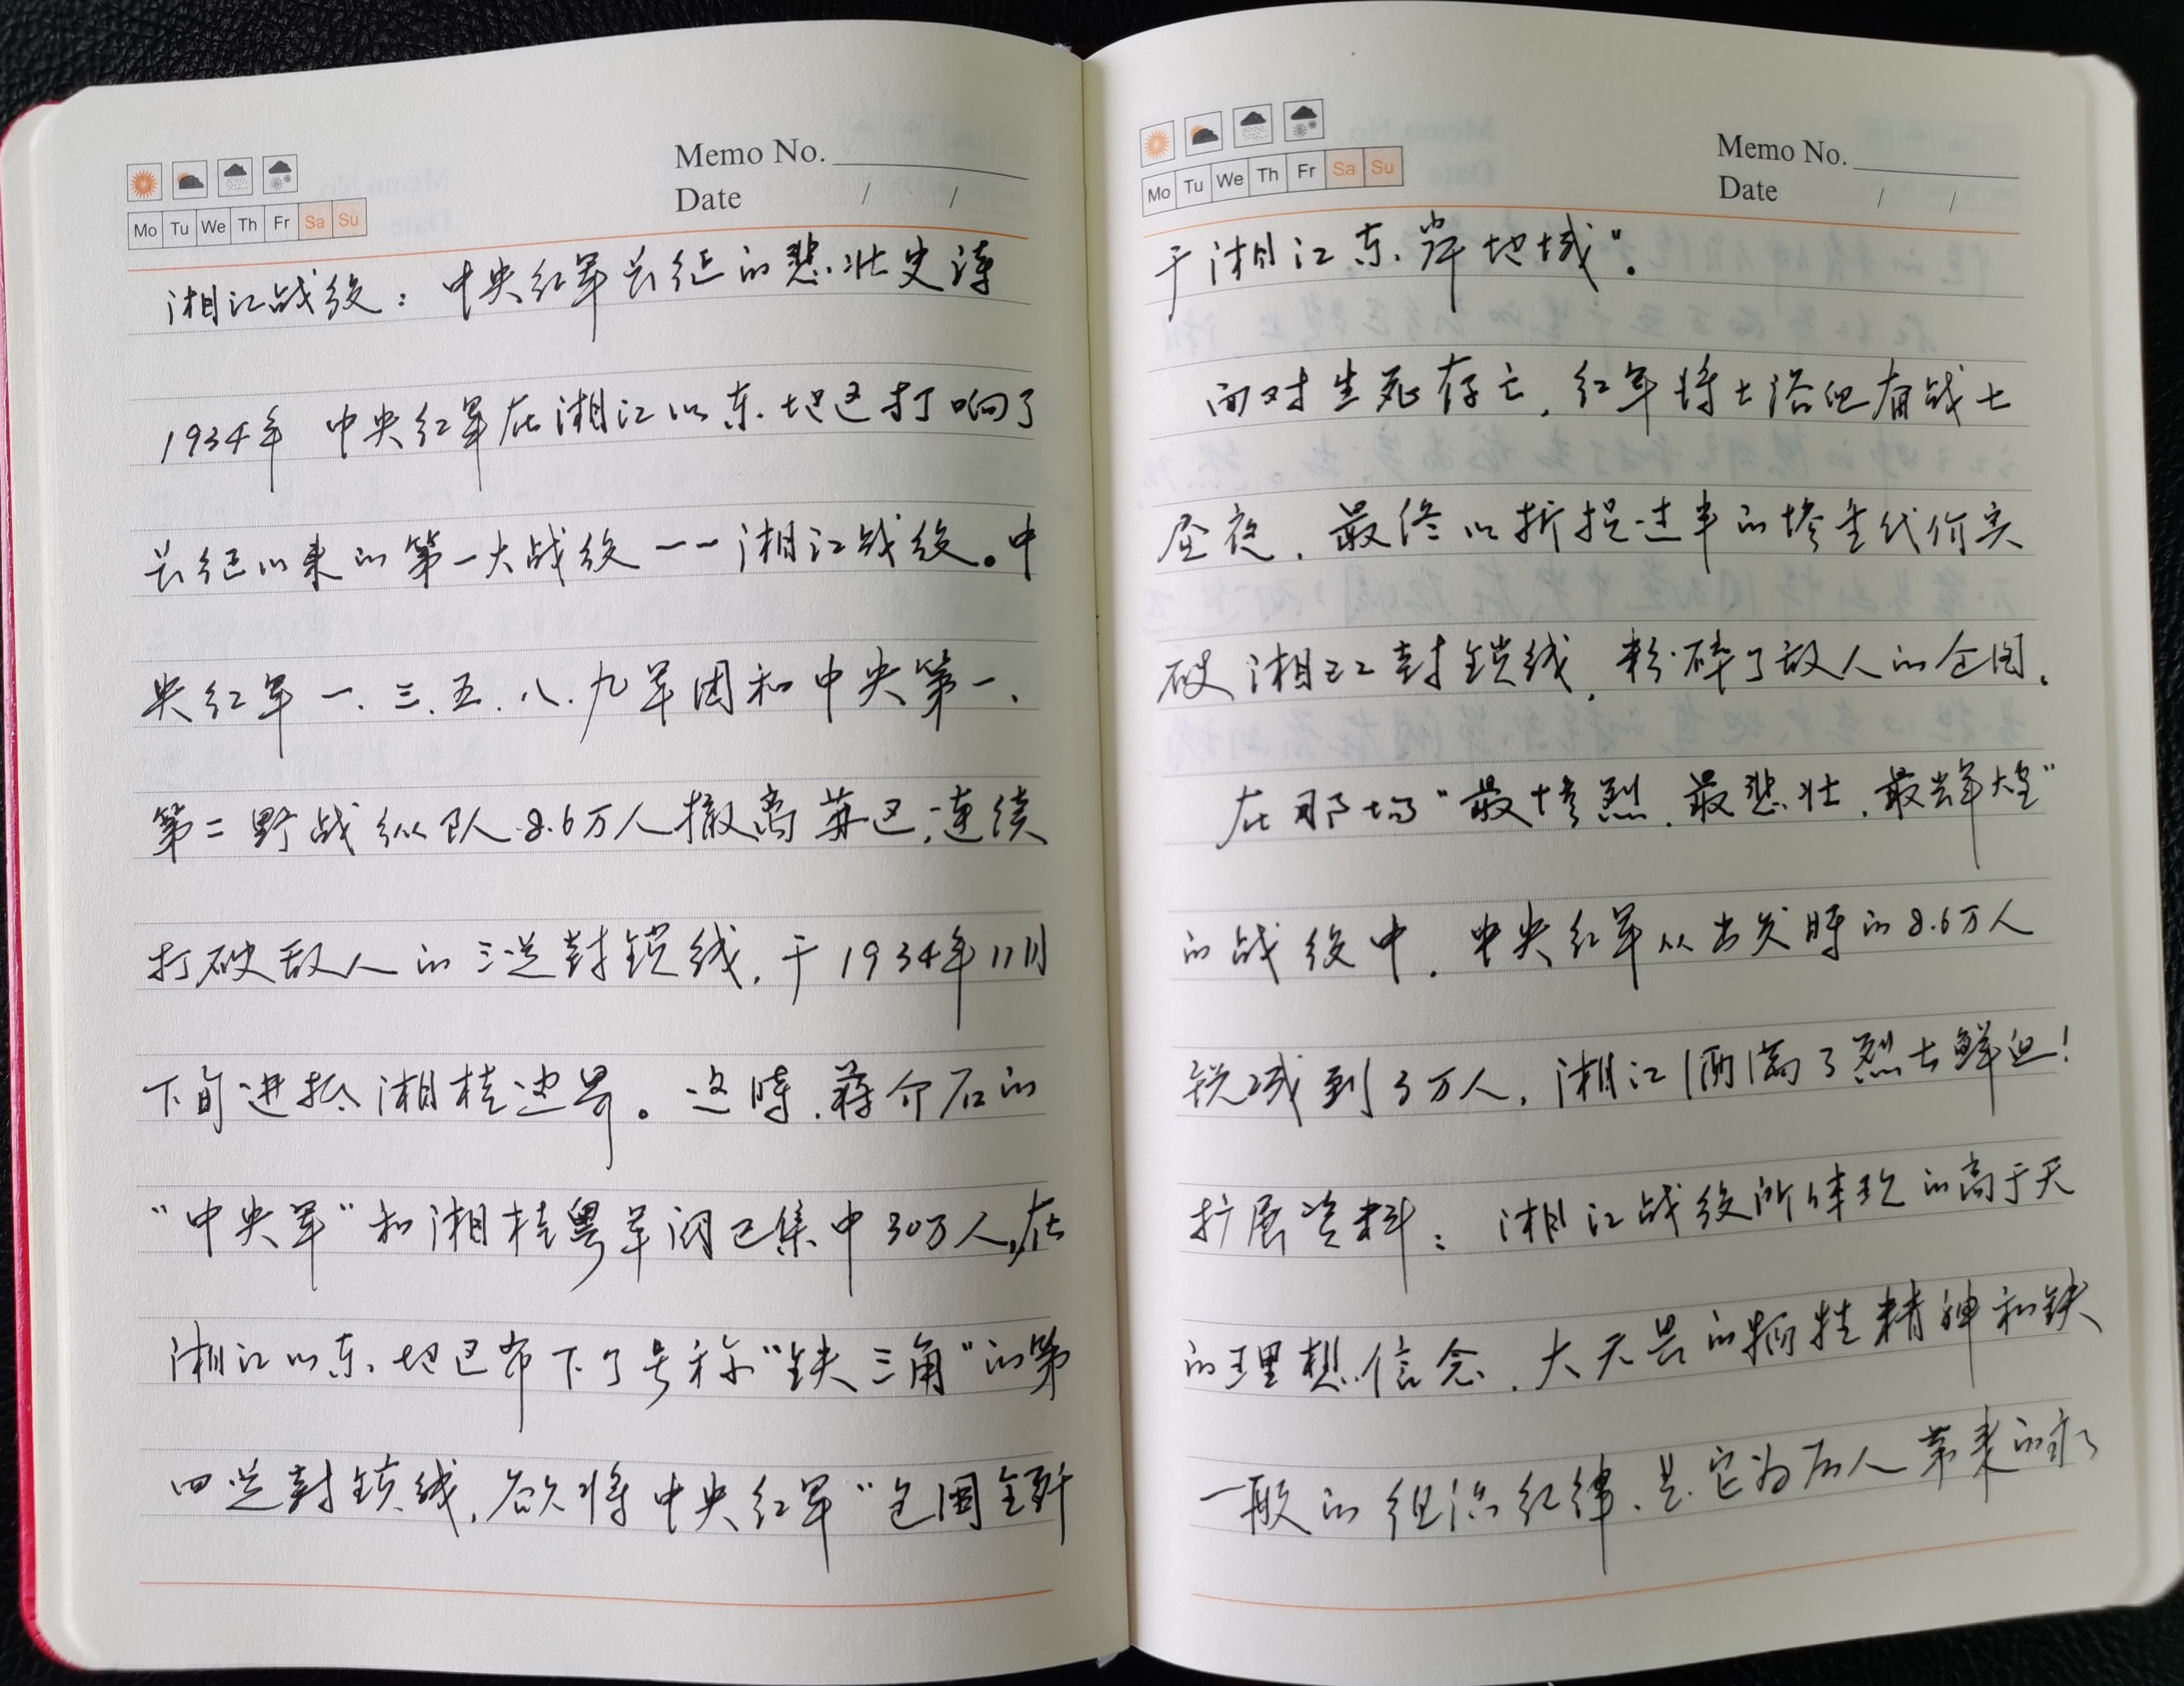 Memo No.
Date / /
Mo Tu We Th Fr Sa Su
湘江战役：中央红军长征的悲壮史诗
1934年 中央红军在湘江以东地区打响了
长征以来的第一大战役——湘江战役。中
央红军一、三、五、八、九军团和中央第一、
第二野战纵队8.6万人撤离苏区，连续
打破敌人的三道封锁线，于1934年11月
下旬进抵湘桂边界。这时，蒋介石的
“中央军”和湘桂粤军阀已集中30万人，在
湘江以东地区布下了号称“铁三角”的第
四道封锁线，欲将中央红军“包围全歼
Memo No.
Date / /
Mo Tu We Th Fr Sa Su
于湘江东岸地域”。
面对生死存亡，红军将士浴血奋战七
昼夜，最终以折损过半的惨重代价突
破湘江封锁线，粉碎了敌人的企图。
在那场“最惨烈、最悲壮、最辉煌”
的战役中，中央红军从出发时的8.6万人
锐减到3万人，湘江洒满了烈士鲜血！
扩展资料：湘江战役所体现的高于天
的理想信念、大无畏的牺牲精神和铁
一般的组织纪律，是它为后人带来的